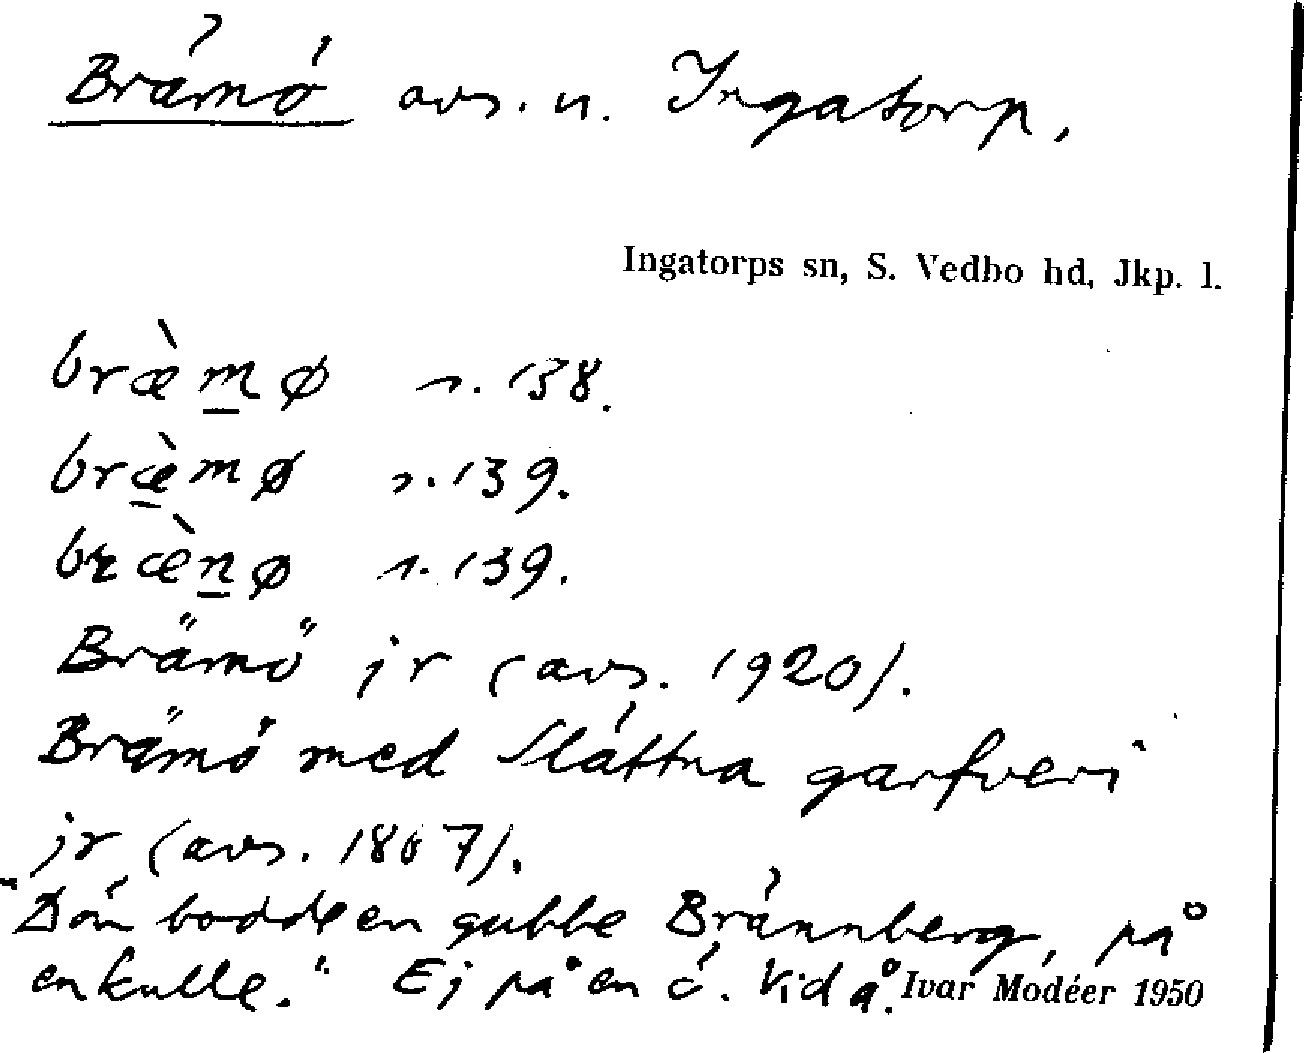 Brämö avs. u. Ingatorp.
Ingatorps sn, S. Vedbo hd, Jkp. l.
bræ̀mø s. 138.
bræ̀mø s. 139.
bræ̀nø s. 139.
Brämö jr (avs. 1920).
Brämö med Slättna garfveri
jr (avs. 1867).
"Dön bodde en gubbe Brännberg, på
en kulle." Ej på en ö. Vid å. Ivar Modéer 1950